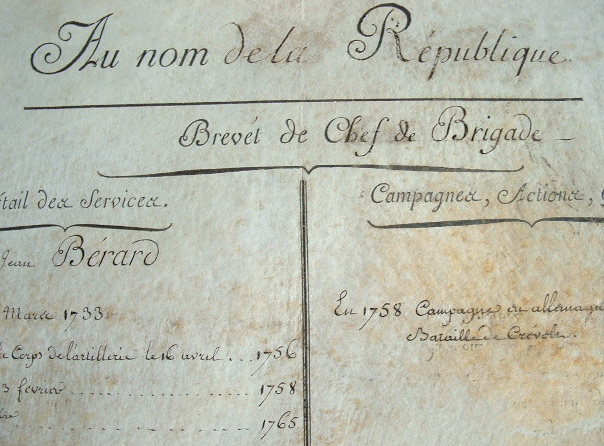 Au nom de la République
Brevét de Chef de Brigade
tail des Services.
Jean Bérard
Mars 1733
Corps de l'artillerie le 16 avril . . . 1756
3 février . . . . . . . . . . . . . . . . 1758
. . . . . . . . . . . . . . . . . . . . . . . 1765
Campagnes, Actions,
En 1758 Campagne en allemagne
Bataille de Crevelt.